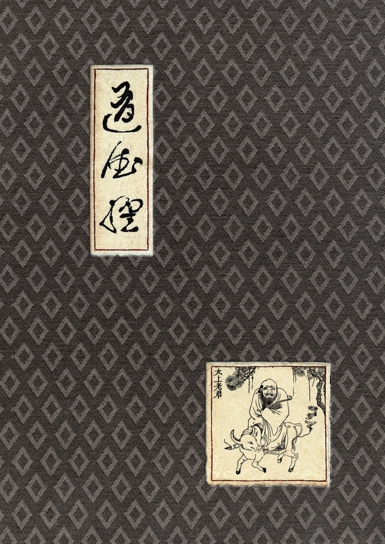 道德經
太上老君